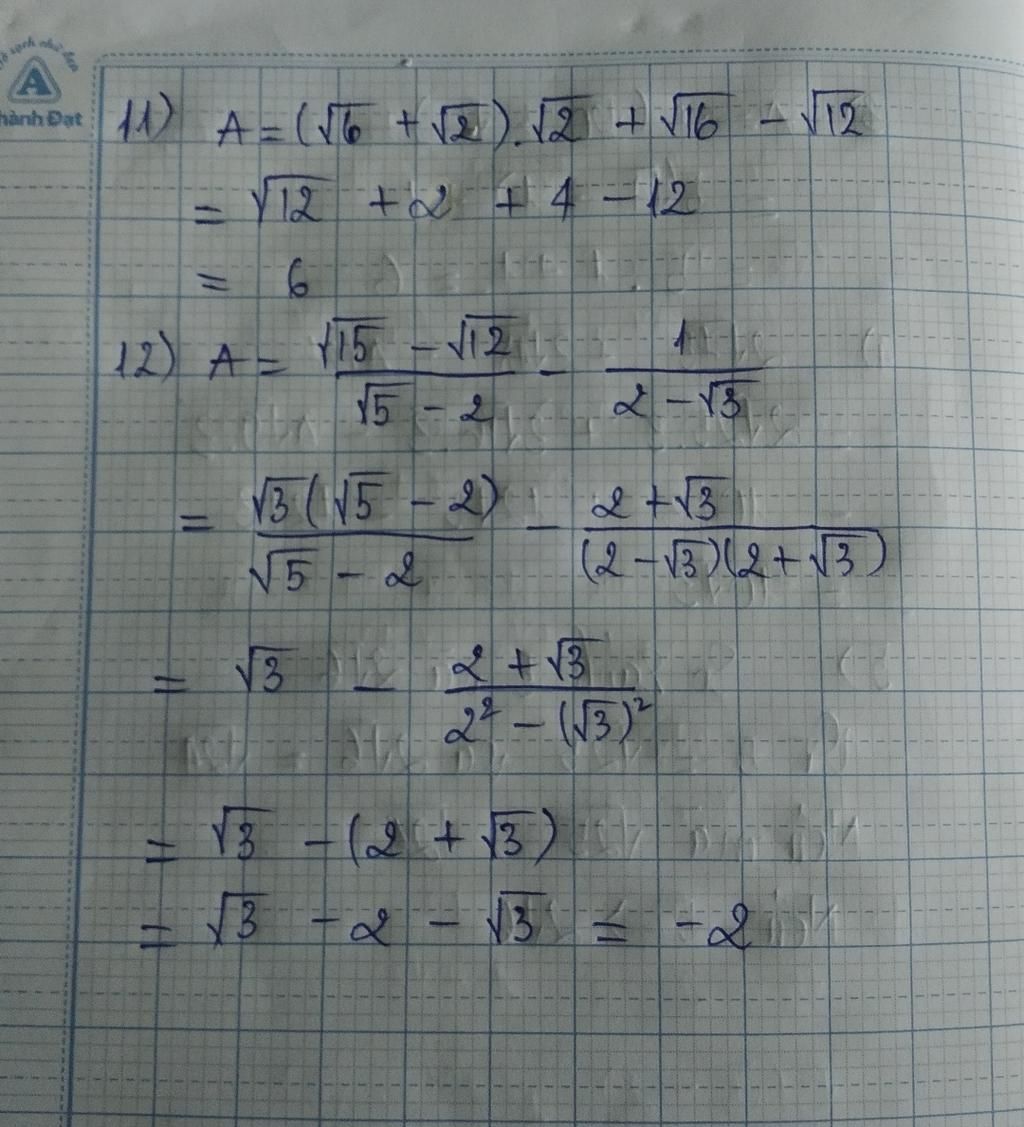 Vở sạch chữ đẹp
A
hành Đạt
11) A = (√6 + √2).√2 + √16 - √12
= √12 + 2 + 4 - 12
= 6
12) A = (√15 - √12)/(√5 - 2) - 1/(2 - √3)
= (√3(√5 - 2))/(√5 - 2) - (2 + √3)/((2 - √3)(2 + √3))
= √3 - (2 + √3)/(2² - (√3)²)
= √3 - (2 + √3)
= √3 - 2 - √3 = -2